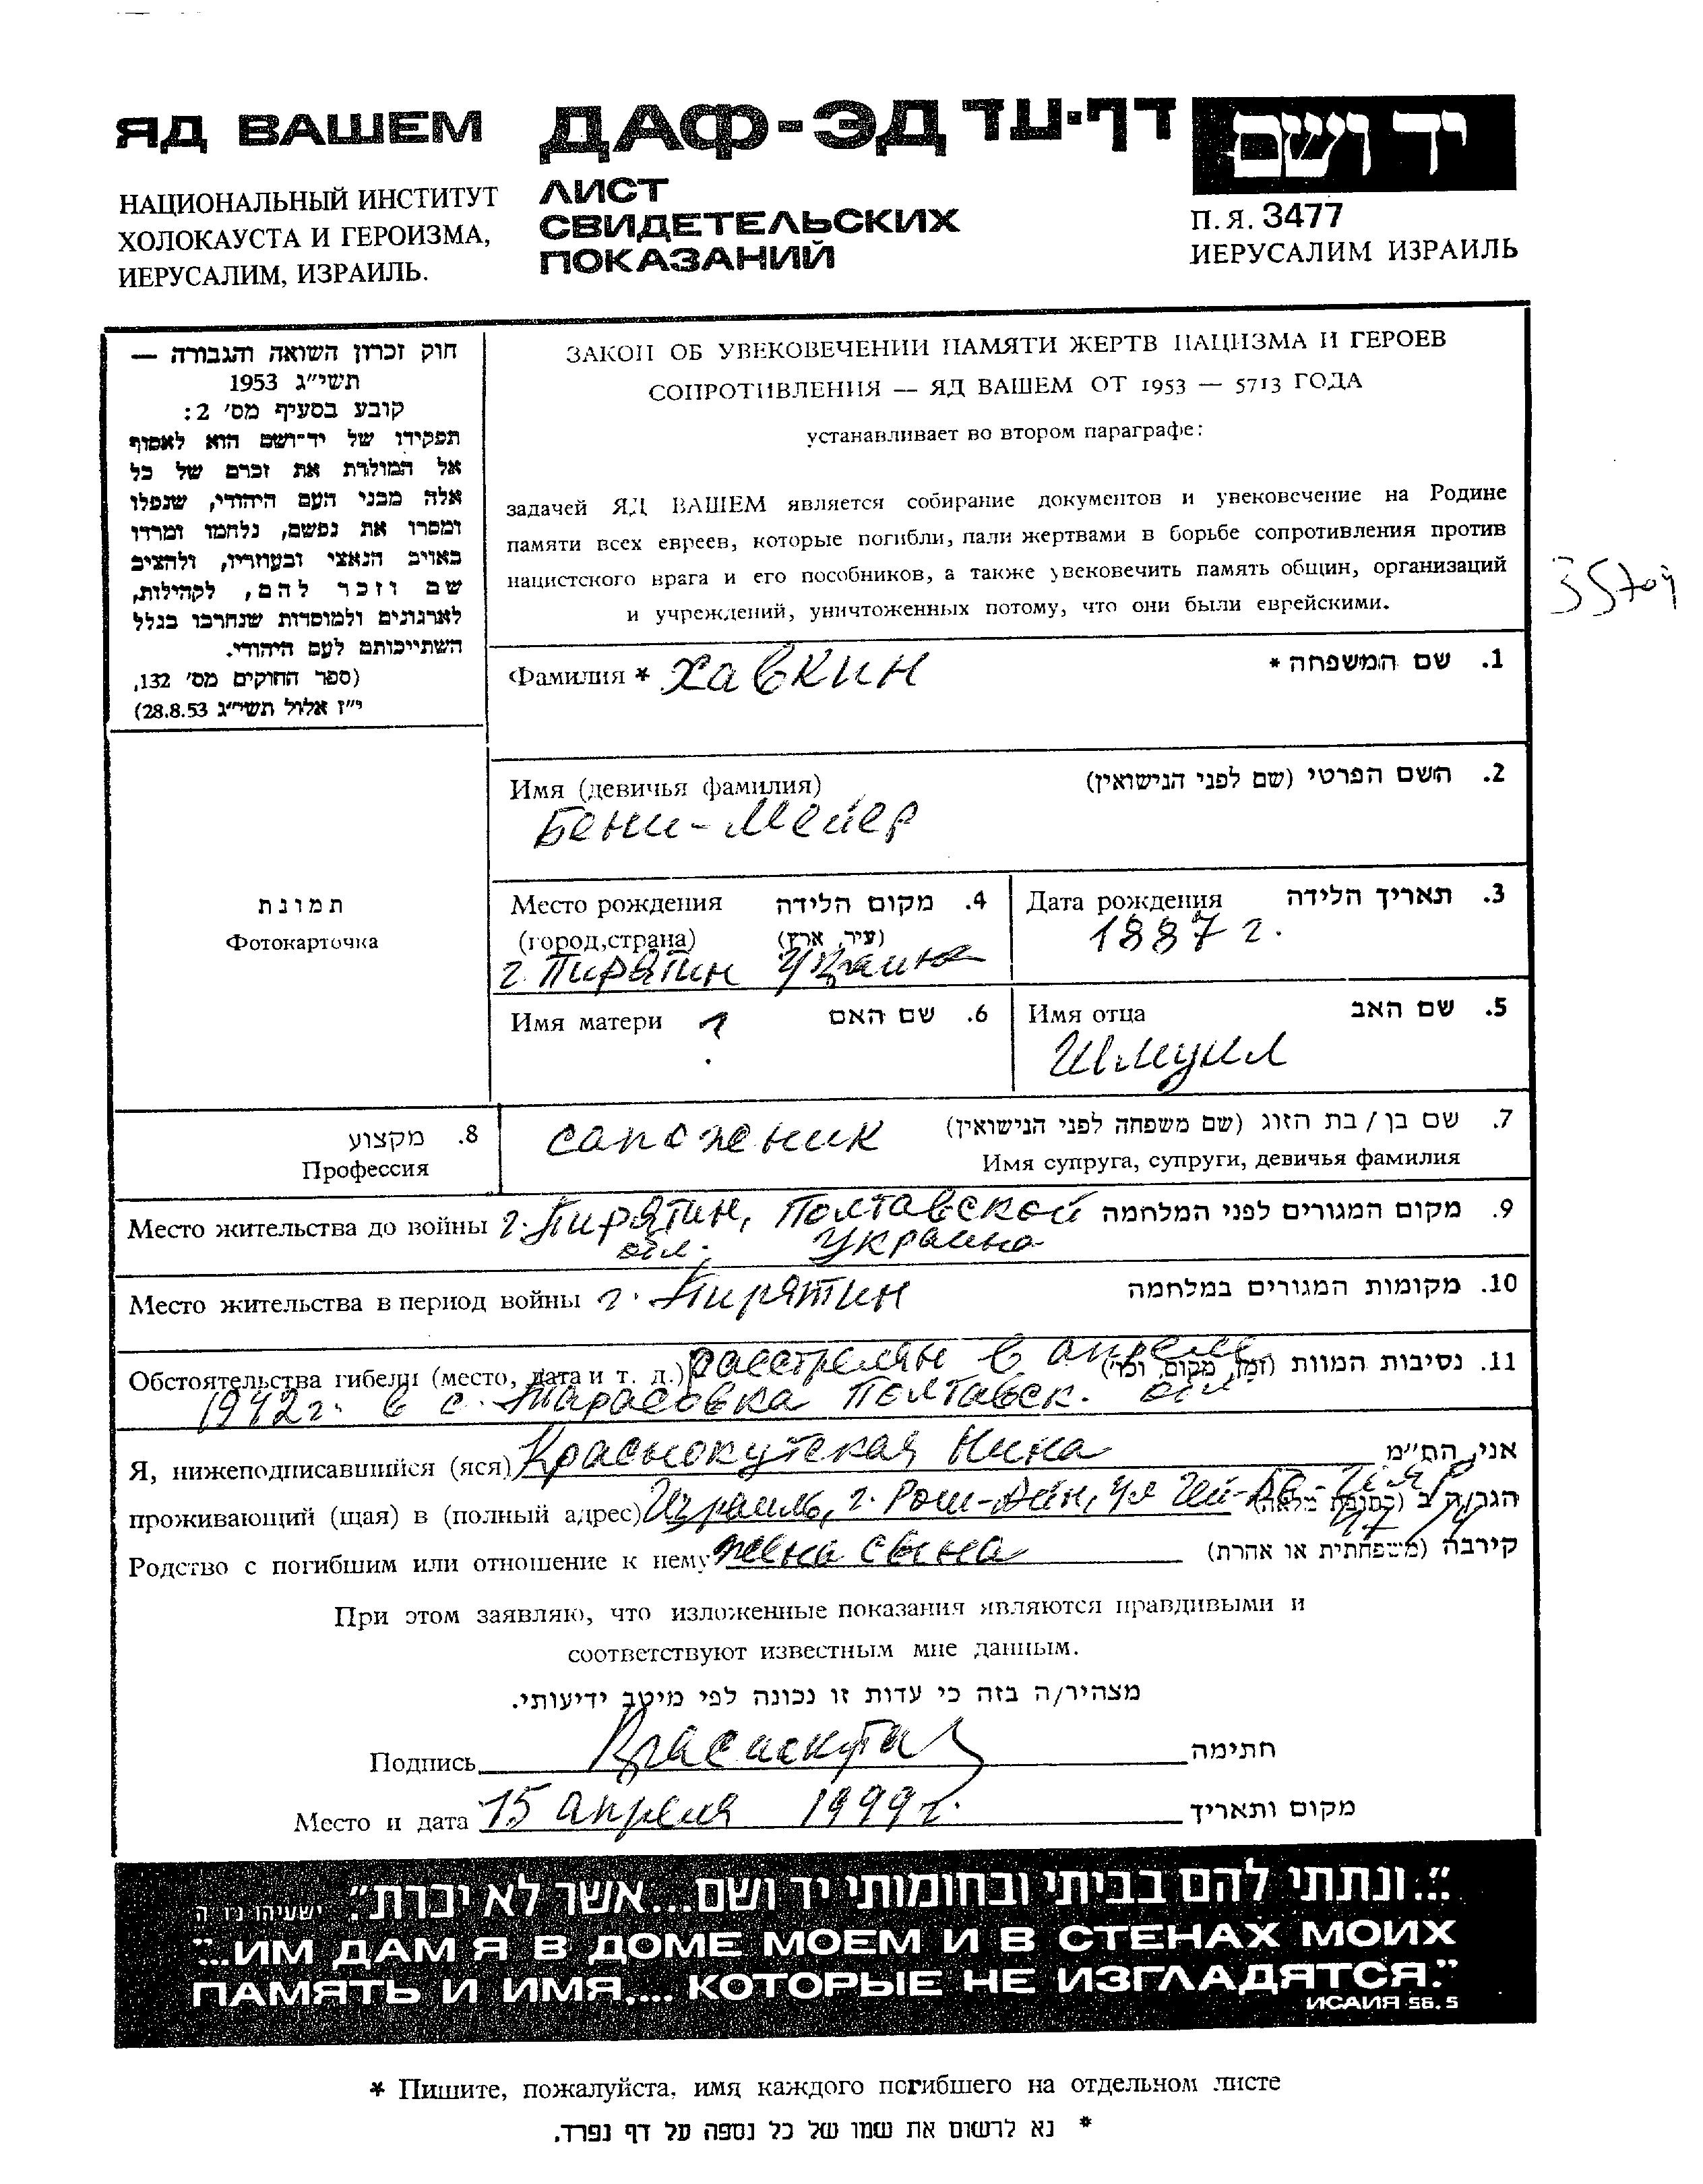 ЯД ВАШЕМ ДАФ-ЭД דף-עד יד ושם
НАЦИОНАЛЬНЫЙ ИНСТИТУТ
ХОЛОКАУСТА И ГЕРОИЗМА,
ИЕРУСАЛИМ, ИЗРАИЛЬ.
ЛИСТ
СВИДЕТЕЛЬСКИХ
ПОКАЗАНИЙ
П.Я. 3477
ИЕРУСАЛИМ ИЗРАИЛЬ
חוק זכרון השואה והגבורה —
תשי״ג 1953
קובע בסעיף מס׳ 2:
תפקידו של יד־ושם הוא לאסוף
אל המולדת את זכרם של כל
אלה מבני העם היהודי, שנפלו
ומסרו את נפשם, נלחמו ומרדו
באויב הנאצי ובעוזריו, ולהציב
שם וזכר להם, לקהילות,
לארגונים ולמוסדות שנחרבו בגלל
השתייכותם לעם היהודי.
(ספר החוקים מס׳ 132,
י״ז אלול תשי״ג 28.8.53)
ЗАКОН ОБ УВЕКОВЕЧЕНИИ ПАМЯТИ ЖЕРТВ НАЦИЗМА И ГЕРОЕВ
СОПРОТИВЛЕНИЯ — ЯД ВАШЕМ ОТ 1953 — 5713 ГОДА
устанавливает во втором параграфе:
задачей ЯД ВАШЕМ является собирание документов и увековечение на Родине
памяти всех евреев, которые погибли, пали жертвами в борьбе сопротивления против
нацистского врага и его пособников, а также увековечить память общин, организаций
и учреждений, уничтоженных потому, что они были еврейскими.
Фамилия * Хавкин 1. שם המשפחה *
Имя (девичья фамилия) 2. השם הפרטי (שם לפני הנישואין)
Бени-Мейер
Место рождения 4. מקום הלידה
(город,страна) (עיר, ארץ)
г. Пирятин Украина
Дата рождения 3. תאריך הלידה
1887 г.
Имя матери ? 6. שם האם
Имя отца 5. שם האב
Шмуил
תמונת
Фотокарточка
8. מקצוע
Профессия
сапожник 7. שם בן / בת הזוג (שם משפחה לפני הנישואין)
Имя супруга, супруги, девичья фамилия
Место жительства до войны г. Пирятин, Полтавской 9. מקום המגורים לפני המלחמה
обл. Украина
Место жительства в период войны г. Пирятин 10. מקומות המגורים במלחמה
Обстоятельства гибели (место, дата и т. д.) Расстрелян в апреле 11. נסיבות המוות (זמן, מקום, וכו׳)
1942 г. в с. Тарасовка Полтавск. обл.
Я, нижеподписавшийся (яся) Краснокутская Нина אני, הח״מ
проживающий (щая) в (полный адрес) Израиль, г. Рош-Аин, ул הגר/ה ב (כתובת מלאה)
Родство с погибшим или отношение к нему жена сына קירבה (משפחתית או אחרת)
При этом заявляю, что изложенные показания являются правдивыми и
соответствуют известным мне данным.
מצהיר/ה בזה כי עדות זו נכונה לפי מיטב ידיעותי.
Подпись חתימה
Место и дата 15 апреля 1999 г. מקום ותאריך
״...ונתתי להם בביתי ובחומותי יד ושם...אשר לא יכרת״. ישעיהו נו ה
"...ИМ ДАМ Я В ДОМЕ МОЕМ И В СТЕНАХ МОИХ
ПАМЯТЬ И ИМЯ.... КОТОРЫЕ НЕ ИЗГЛАДЯТСЯ."
ИСАИЯ 56.5
* Пишите, пожалуйста, имя каждого погибшего на отдельном листе
* נא לרשום את שמו של כל נספה על דף נפרד.